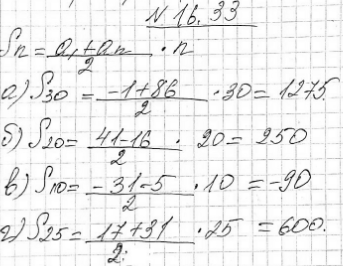 № 16.33
Sn = a₁+an/2 · n
а) S30 = -1+86/2 · 30 = 1275
б) S20 = 41-16/2 · 20 = 250
в) S10 = -31-5/2 · 10 = -90
г) S25 = 17+31/2 · 25 = 600.